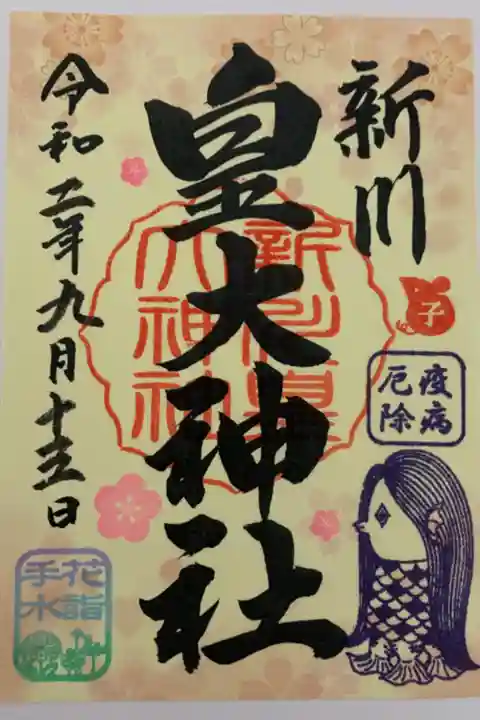 新川
皇大神社
令和二年九月十五日
新川皇
大神社
子
疫病
厄除
花詣
手水